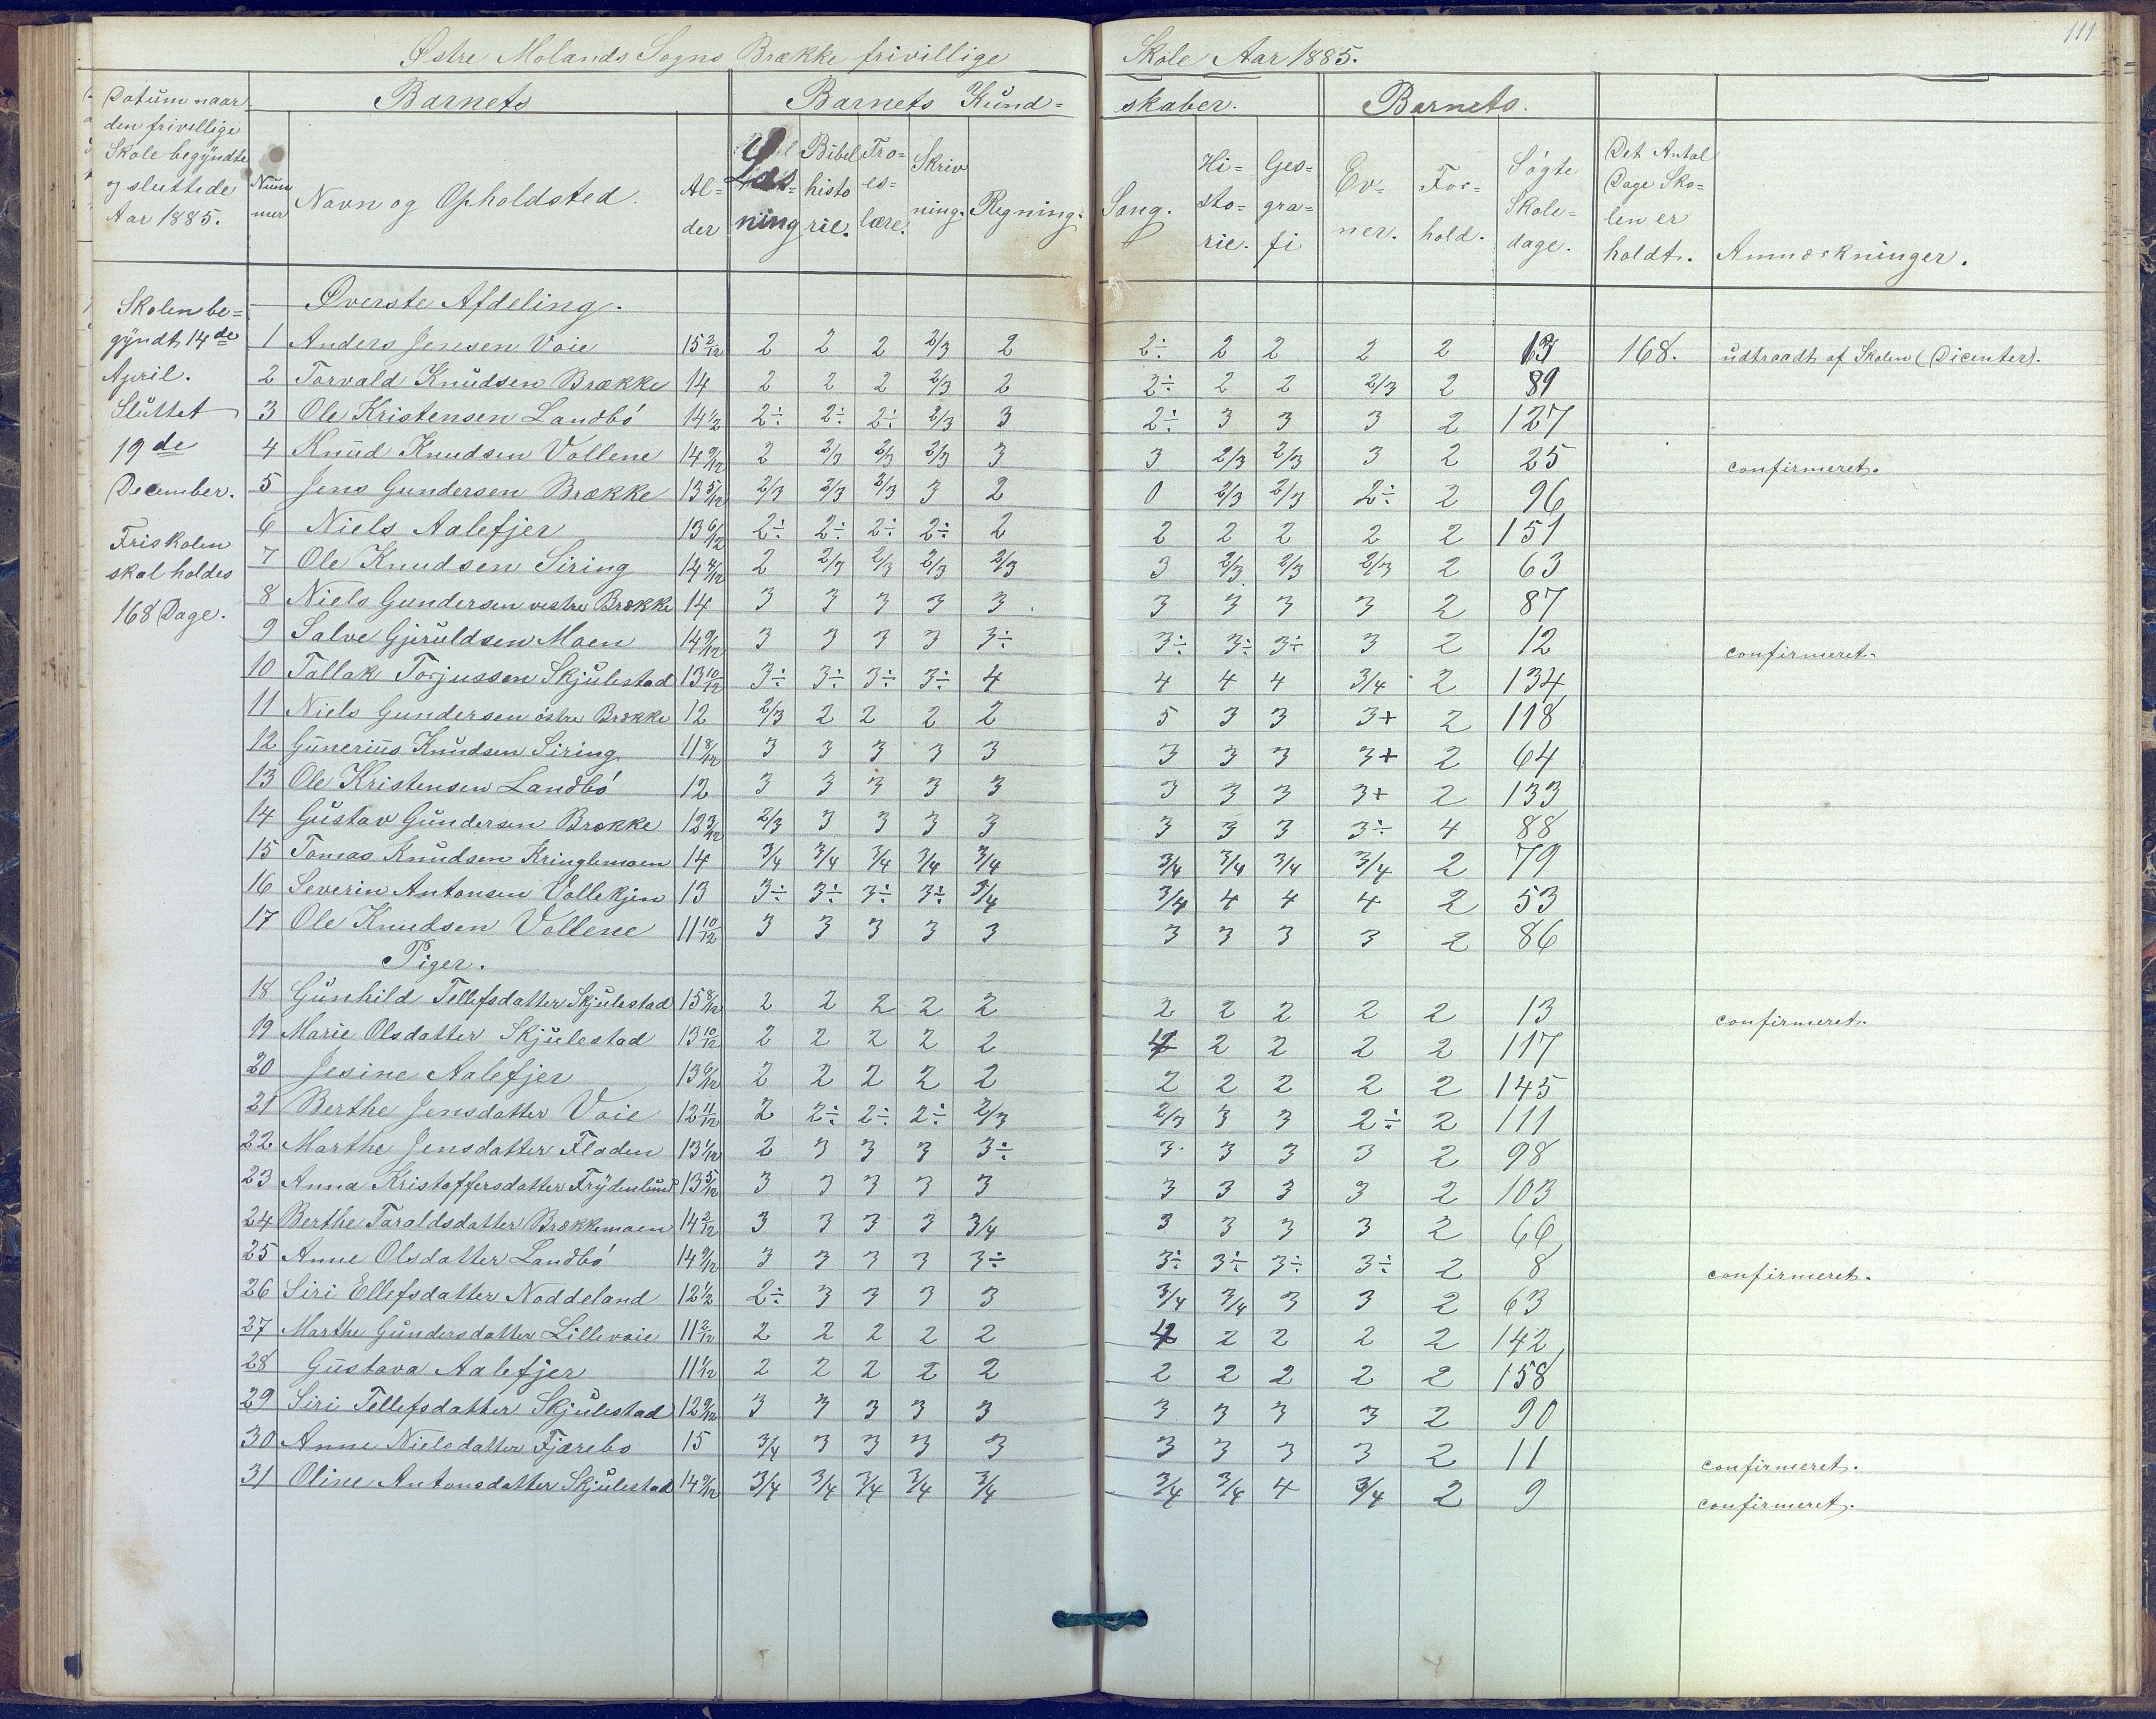 111
Østre Molands Sogns Brække frivillige Skole Aar 1885.
Datum naar den frivillige Skole begyndte og sluttede Aar 1885.
Barnets
Barnets Kund=skaber.
Barnets.
Num mer
Navn og Opholdsted.
Al=der
Læs=ning
Bibel histo rie.
Tro=es=lære.
Skriv ning.
Regning.
Sang.
Hi=sto=rie.
Geo=gra=fi
Ev=ner.
For=hold.
Søgte Skole=dage.
Det Antal Dage Sko=len er holdt.
Anmærkninger.
Skolen be=
gyndt 14de
April.
Sluttet
19de
December.
Friskolen
skal holdes
168 Dage.
Øverste Afdeling.
1 Anders Jensen Voie 15 2/12 2 2 2 2/3 2 2÷ 2 2 2 2 13 168. udtraadt af Skolen (Dicenter).
2 Torvald Knudsen Brække 14 2 2 2 2/3 2 2÷ 2 2 2/3 2 89
3 Ole Kristensen Landbø 14 1/2 2÷ 2÷ 2÷ 2/3 3 2÷ 3 3 3 2 127
4 Knud Knudsen Vollene 14 9/12 2 2/3 2/3 2/3 3 3 2/3 2/3 3 2 25 confirmeret.
5 Jens Gundersen Brække 13 5/12 2/3 2/3 2/3 3 2 0 2/3 2/3 2÷ 2 96
6 Niels Aalefjer 13 6/12 2÷ 2÷ 2÷ 2÷ 2 2 2 2 2 2 151
7 Ole Knudsen Siring 14 4/12 2 2/3 2/3 2/3 2/3 3 2/3 2/3 2/3 2 63
8 Niels Gundersen vestre Brække 14 3 3 3 3 3 3 3 3 3 2 87
9 Salve Gjeruldsen Moen 14 9/12 3 3 3 3 3÷ 3÷ 3÷ 3÷ 3 2 12 confirmeret.
10 Tallak Torjussen Skjulestad 13 10/12 3÷ 3÷ 3÷ 3÷ 4 4 4 4 3/4 2 134
11 Niels Gundersen østre Brække 12 2/3 2 2 2 2 5 3 3 3+ 2 118
12 Gunerius Knudsen Siring 11 8/12 3 3 3 3 3 3 3 3 3+ 2 64
13 Ole Kristensen Landbø 12 3 3 3 3 3 3 3 3 3+ 2 133
14 Gustav Gundersen Brække 12 3/12 2/3 3 3 3 3 3 3 3 3÷ 4 88
15 Tomas Knudsen Kringlemoen 14 3/4 3/4 3/4 3/4 3/4 3/4 3/4 3/4 3/4 2 79
16 Severin Antonsen Vollekjen 13 3÷ 3÷ 3÷ 3÷ 3/4 3/4 4 4 4 2 53
17 Ole Knudsen Vollene 11 10/12 3 3 3 3 3 3 3 3 3 2 86
Piger.
18 Gunhild Tellefsdatter Skjulestad 15 8/12 2 2 2 2 2 2 2 2 2 2 13 confirmeret.
19 Marie Olsdatter Skjulestad 13 10/12 2 2 2 2 2 4 2 2 2 2 117
20 Jesine Aalefjer 13 6/12 2 2 2 2 2 2 2 2 2 2 145
21 Berthe Jensdatter Voie 12 11/12 2 2÷ 2÷ 2÷ 2/3 2/3 3 3 2÷ 2 111
22 Marthe Jensdatter Fladen 13 1/12 2 3 3 3 3÷ 3 3 3 3 2 98
23 Anna Kristoffersdatter Frydenlund 13 5/12 3 3 3 3 3 3 3 3 3 2 103
24 Berthe Taraldsdatter Brækkemoen 14 2/12 3 3 3 3 3/4 3 3 3 3 2 66
25 Anne Olsdatter Landbø 14 9/12 3 3 3 3 3÷ 3÷ 3÷ 3÷ 3÷ 2 8 confirmeret.
26 Siri Ellefsdatter Noddeland 12 1/2 2÷ 3 3 3 3 3/4 3/4 3 3 2 63
27 Marthe Gundersdatter Lillevoie 11 2/12 2 2 2 2 2 4 2 2 2 2 142
28 Gustava Aalefjer 11 1/12 2 2 2 2 2 2 2 2 2 2 158
29 Siri Tellefsdatter Skjulestad 12 9/12 3 3 3 3 3 3 3 3 3 2 90
30 Anne Nielsdatter Fjærebo 15 3/4 3 3 3 3 3 3 3 3 2 11 confirmeret.
31 Oline Antonsdatter Skjulestad 14 9/12 3/4 3/4 3/4 3/4 3/4 3/4 3/4 4 3/4 2 9 confirmeret.